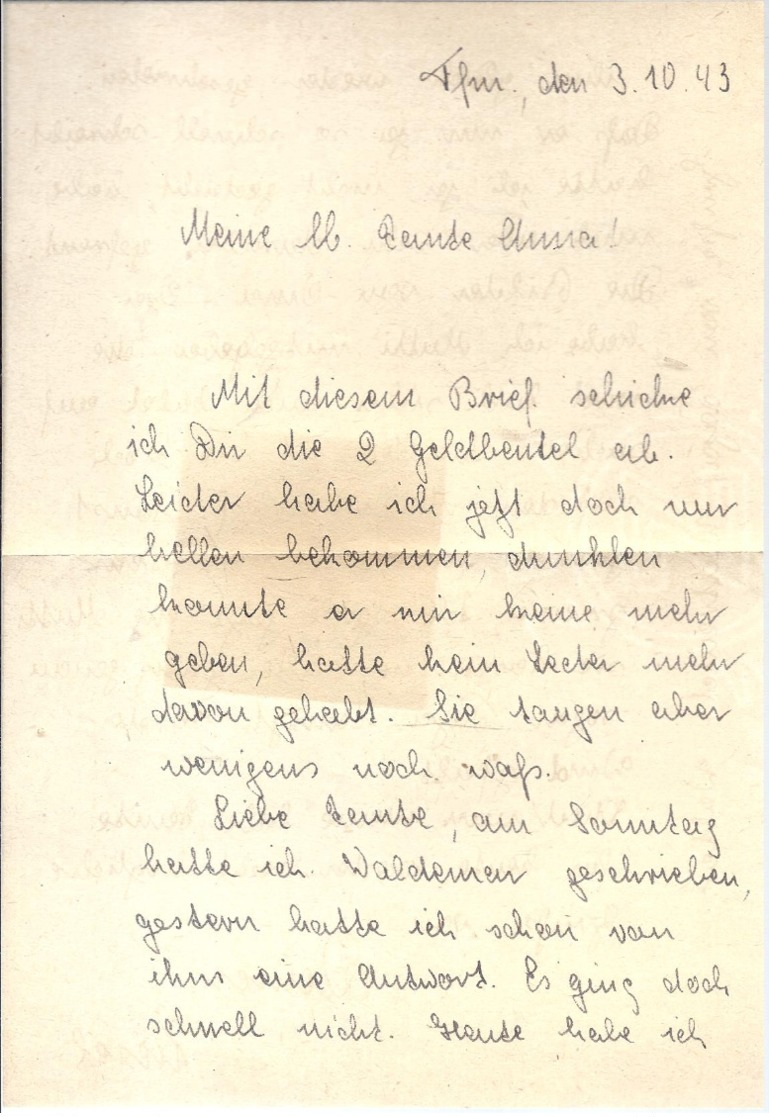 den 3.10.43
Meine lb. Tante Anna!
Mit diesem Brief schicke
ich Dir die 2 Geldbeutel ab.
Leider habe ich jetzt doch nur
hellen bekommen, dunklen
konnte er mir keine mehr
geben, hatte kein Leder mehr
davon gehabt. Sie taugen aber
wenigens noch waß.
Liebe Tante, am Sonntag
hatte ich Waldemar geschrieben,
gestern hatte ich schon von
ihm eine Antwort. Es ging doch
schnell nicht. Heute habe ich